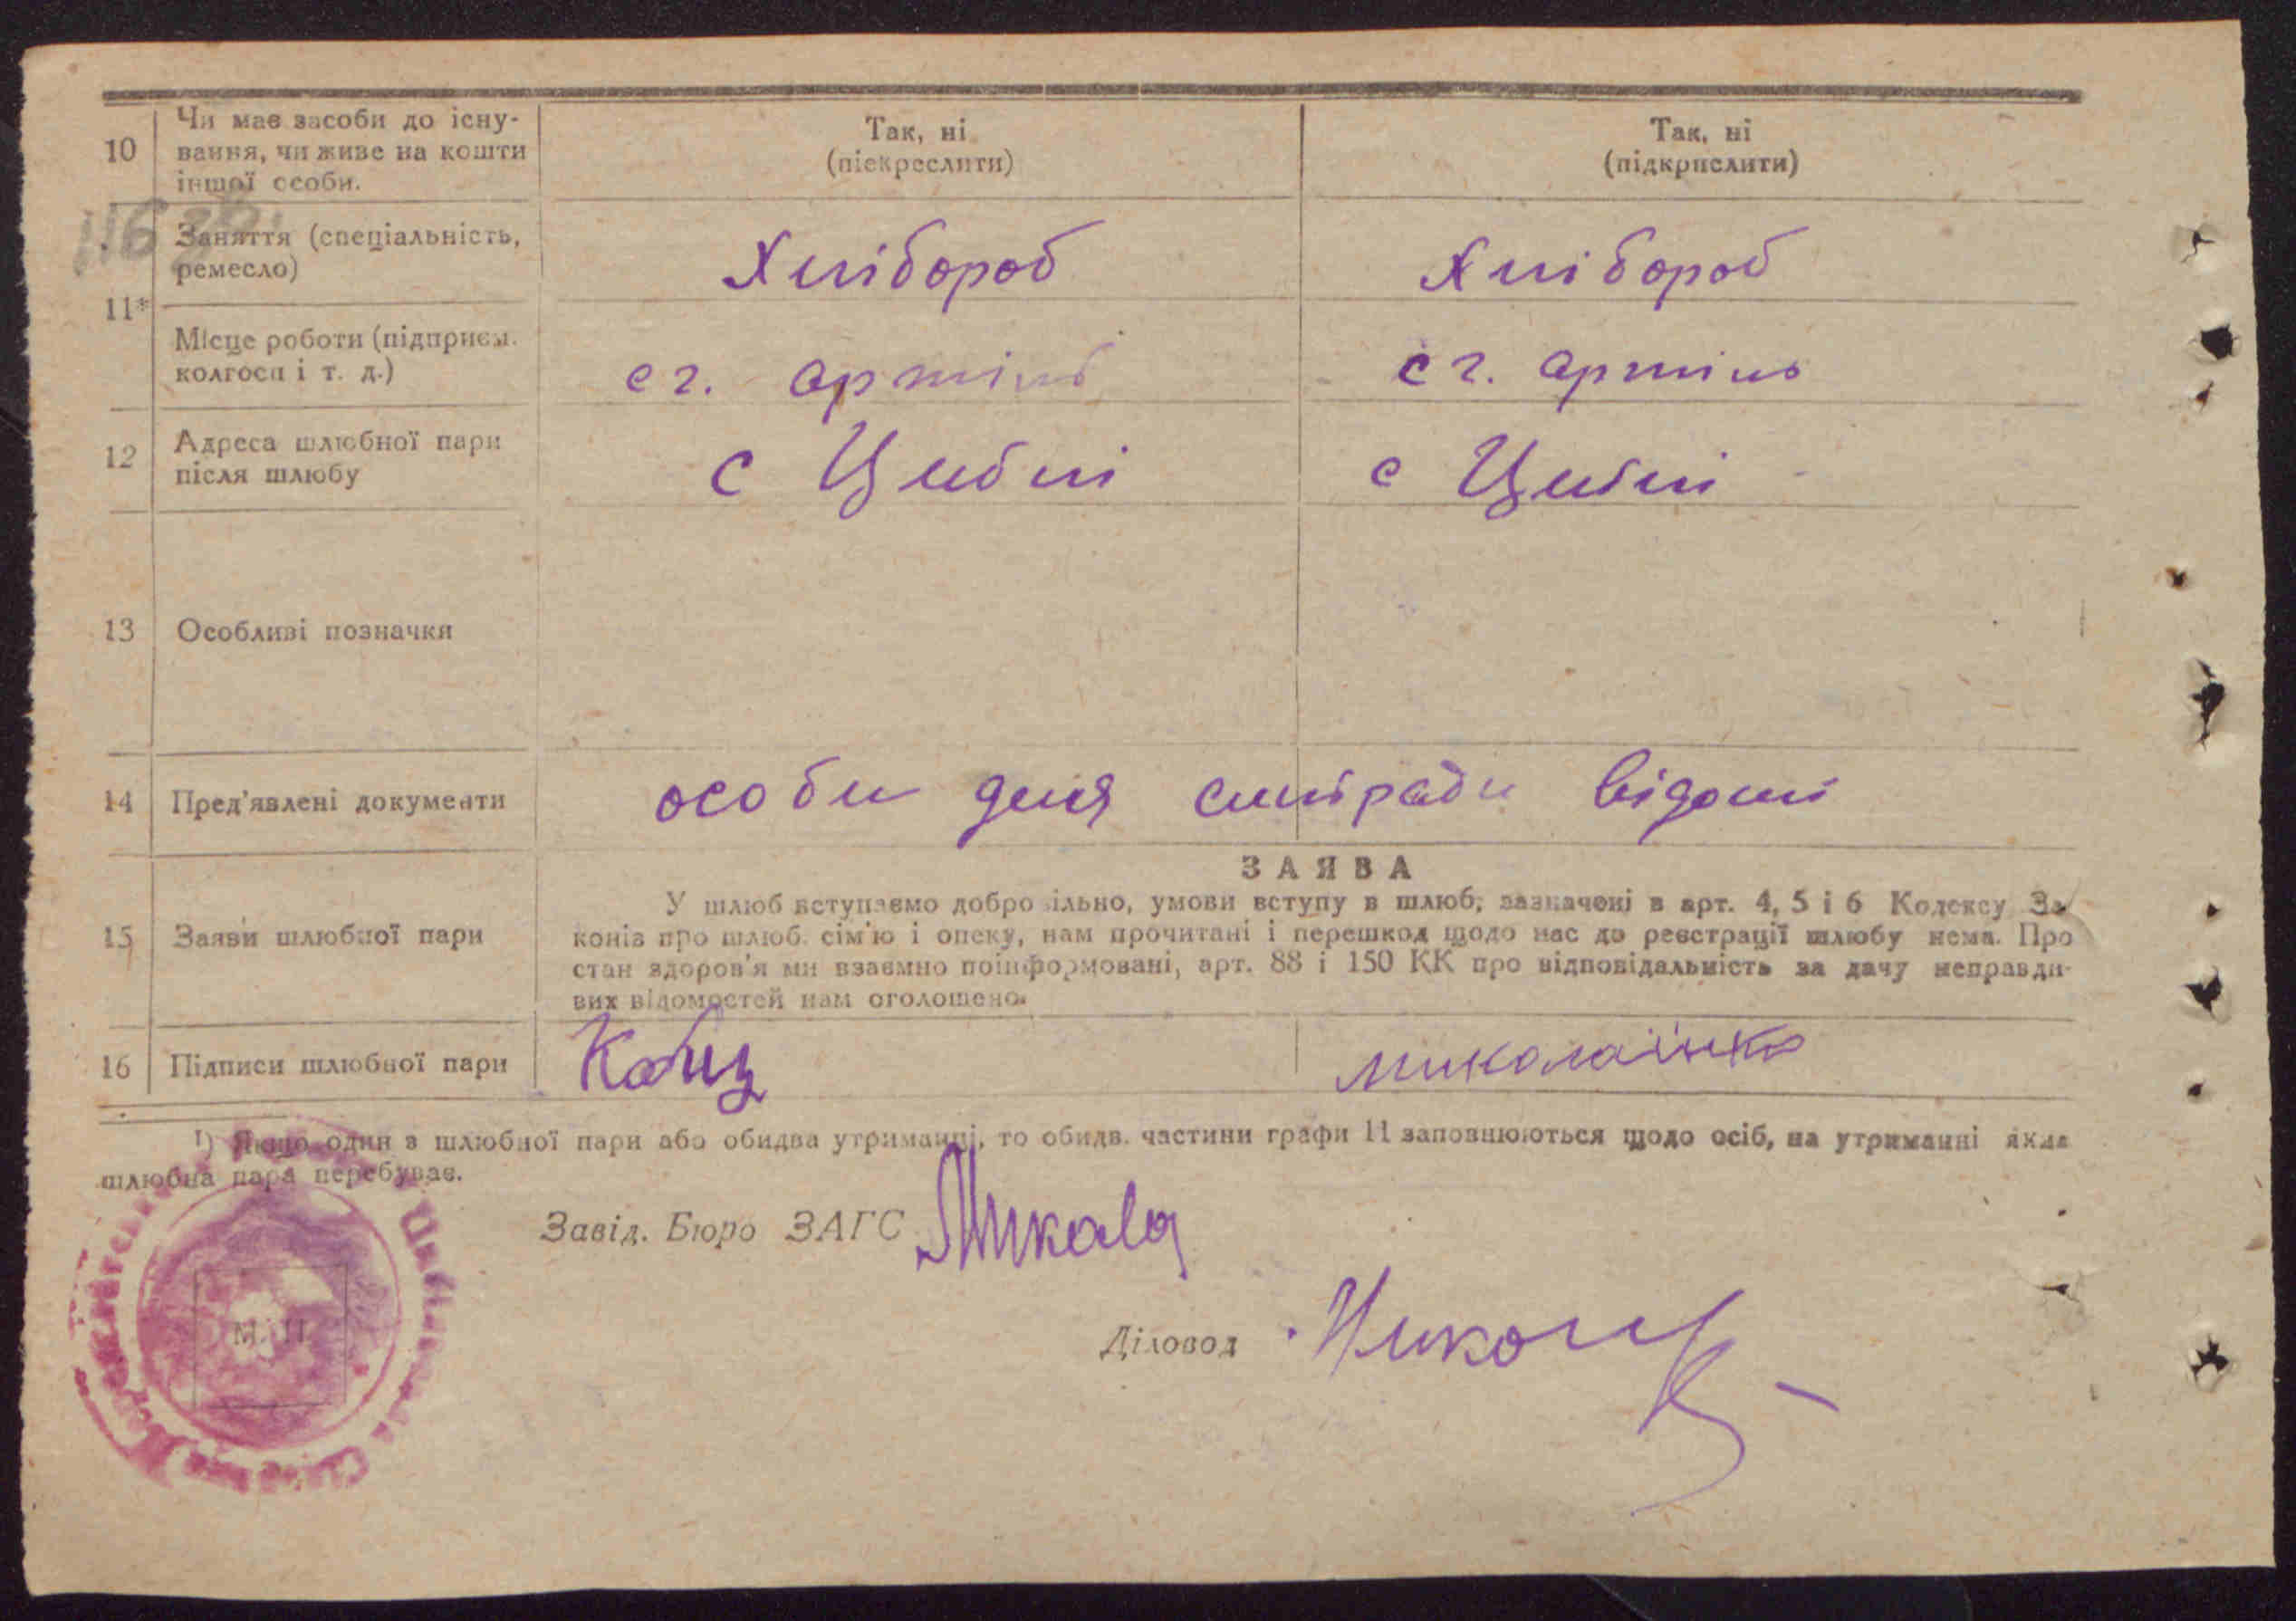 10 Чи має засоби до існу-
вання, чи живе на кошти
іншої особи.
Так, ні
(піекреслити)
Так, ні
(підкрислити)
116 зв.
11* Заняття (спеціальність,
ремесло)
Хлібороб
Хлібороб
Місце роботи (підприєм.
колгосп і т. д.)
с г. артіль
с г. артіль
12 Адреса шлюбної пари
після шлюбу
с Циблі
с Циблі
13 Особливі позначки
14 Пред'явлені документи
особи для сільради відомі
15 Заяви шлюбної пари
ЗАЯВА
У шлюб вступаємо добровільно, умови вступу в шлюб, зазначені в арт. 4, 5 і 6 Кодексу За-
конів про шлюб, сім'ю і опеку, нам прочитані і перешкод щодо нас до реєстрації шлюбу нема. Про
стан здоров'я ми взаємно поінформовані, арт. 88 і 150 КК про відповідальність за дачу неправди-
вих відомостей нам оголошено.
16 Підписи шлюбної пари
Кобиз
Миколаінко
1) Якщо один з шлюбної пари або обидва утриманці, то обидв. частини графи 11 заповнюються щодо осіб, на утриманні яких
шлюбна пара перебуває.
Завід. Бюро ЗАГС
М. П.
Діловод